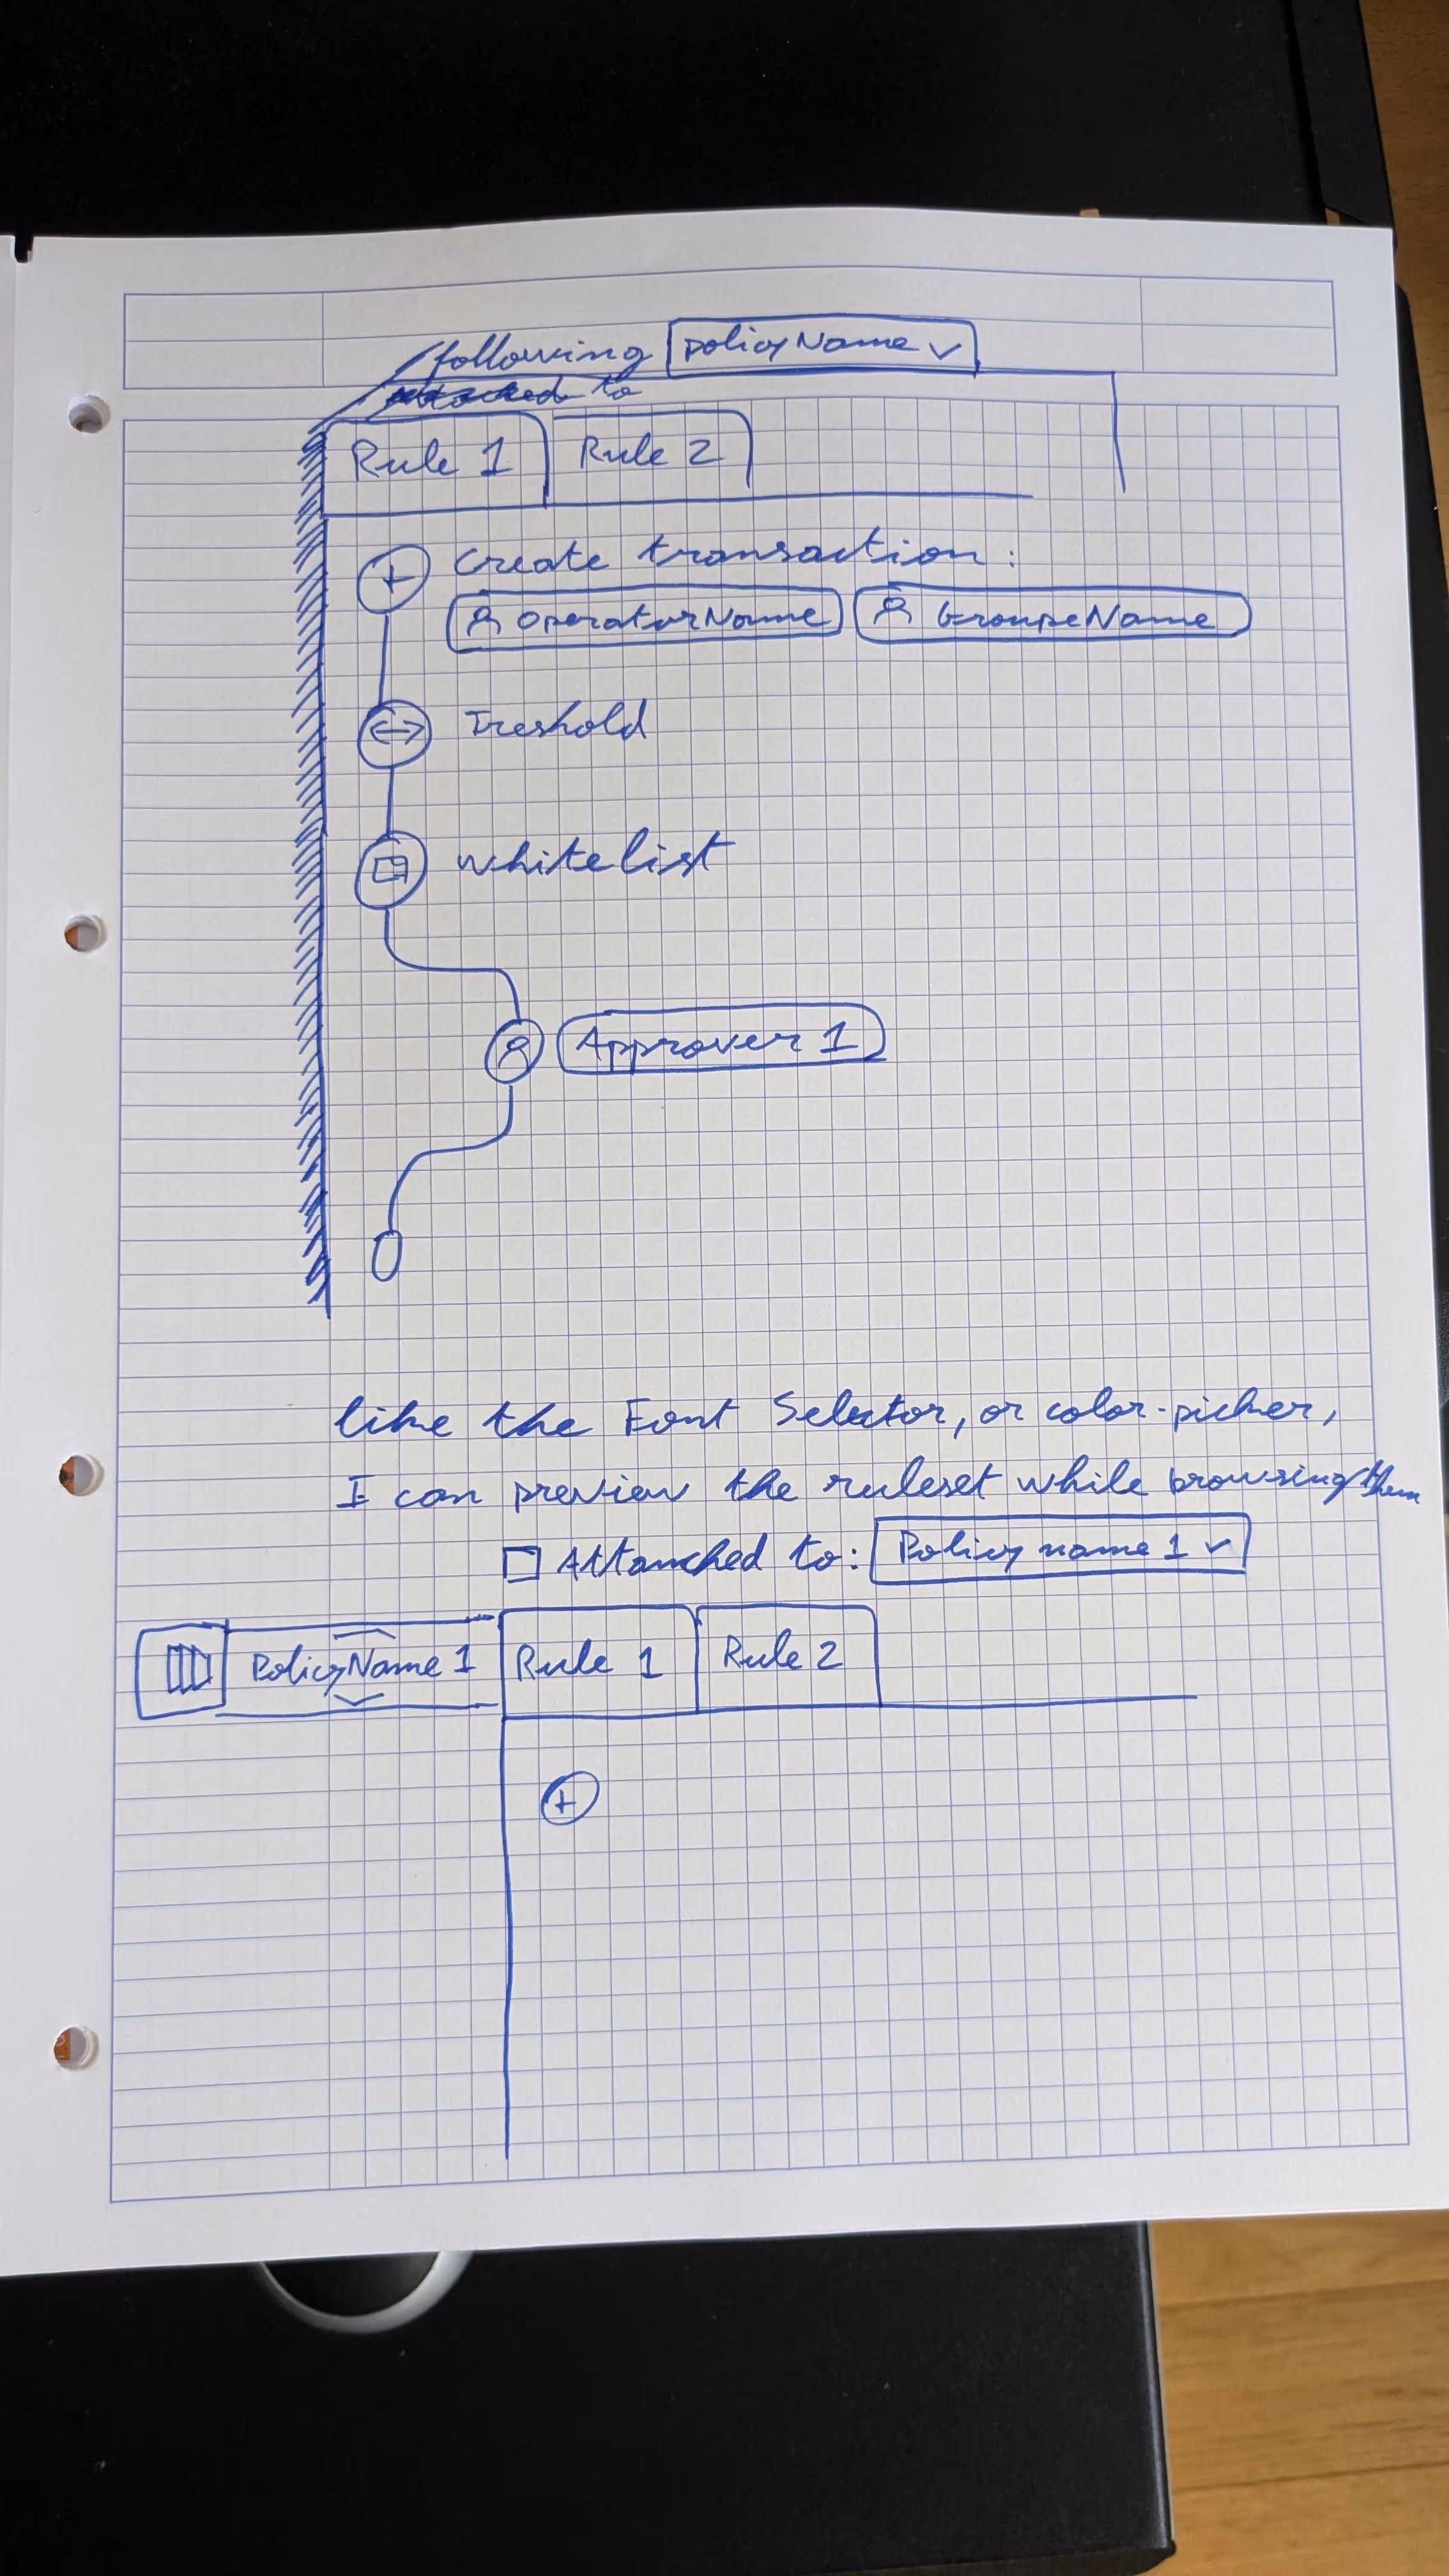 following policyName
attached to
Rule 1 Rule 2
Create transaction:
OperatorName GroupeName
Treshold
whitelist
Approver 1
like the Font Selector, or color-picker,
I can preview the ruleset while browsing them
Attached to: Policy name 1
PolicyName 1 Rule 1 Rule 2